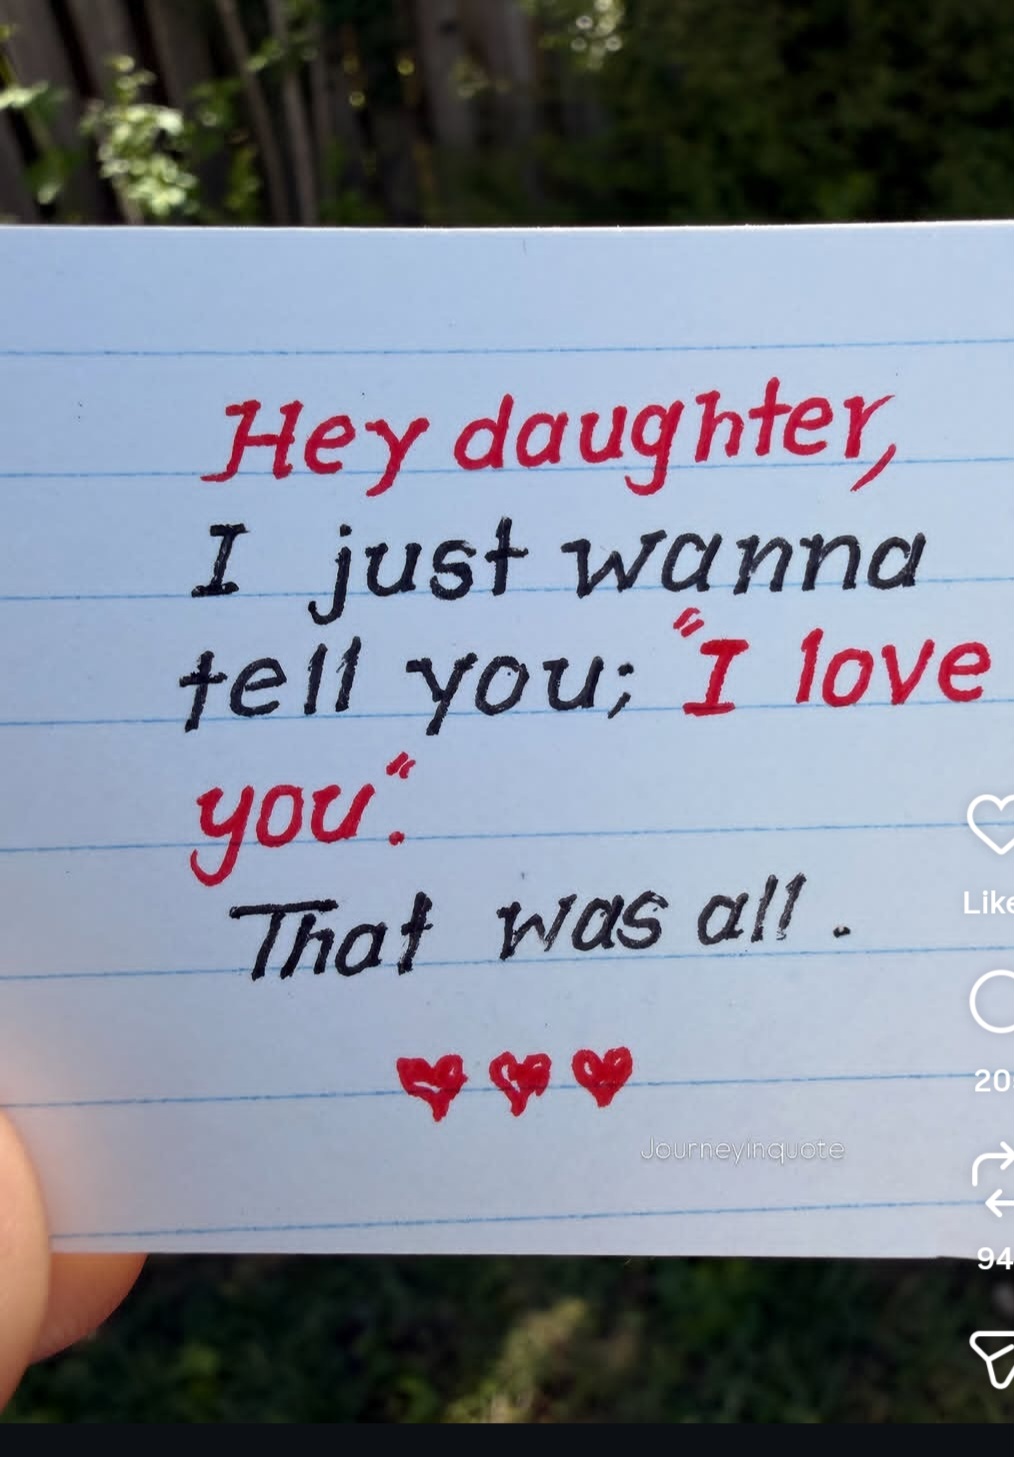 Hey daughter,
I just wanna
tell you; "I love
you".
That was all.
Journeyinquote
Like
94